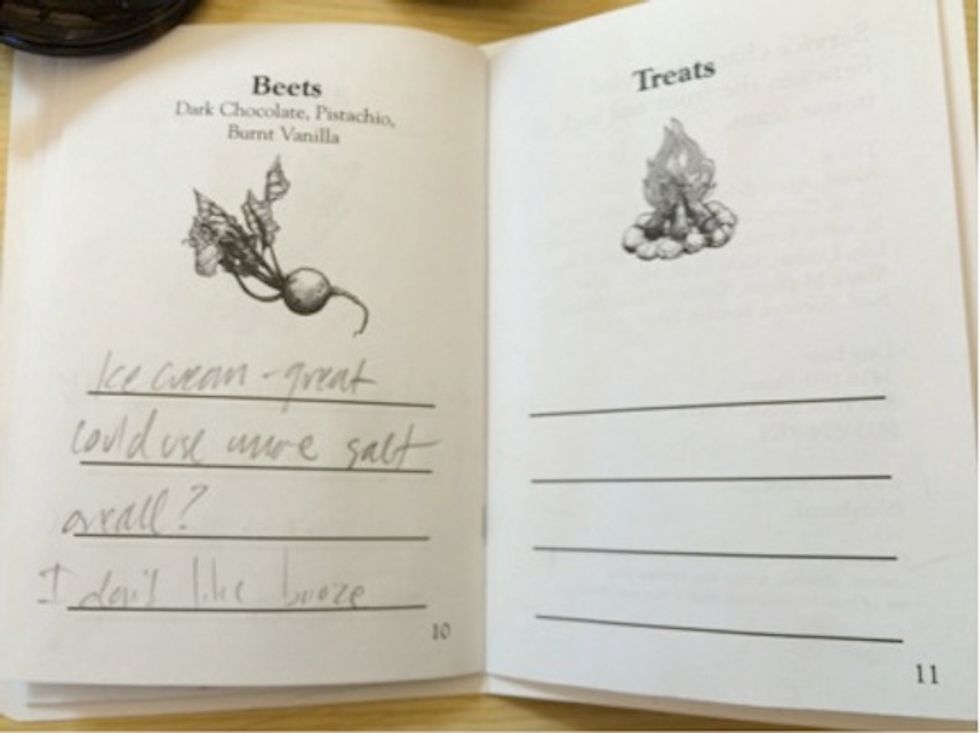 Beets
Dark Chocolate, Pistachio,
Burnt Vanilla
Ice cream - great
could use more salt
overall?
I don't like booze
10
Treats
11